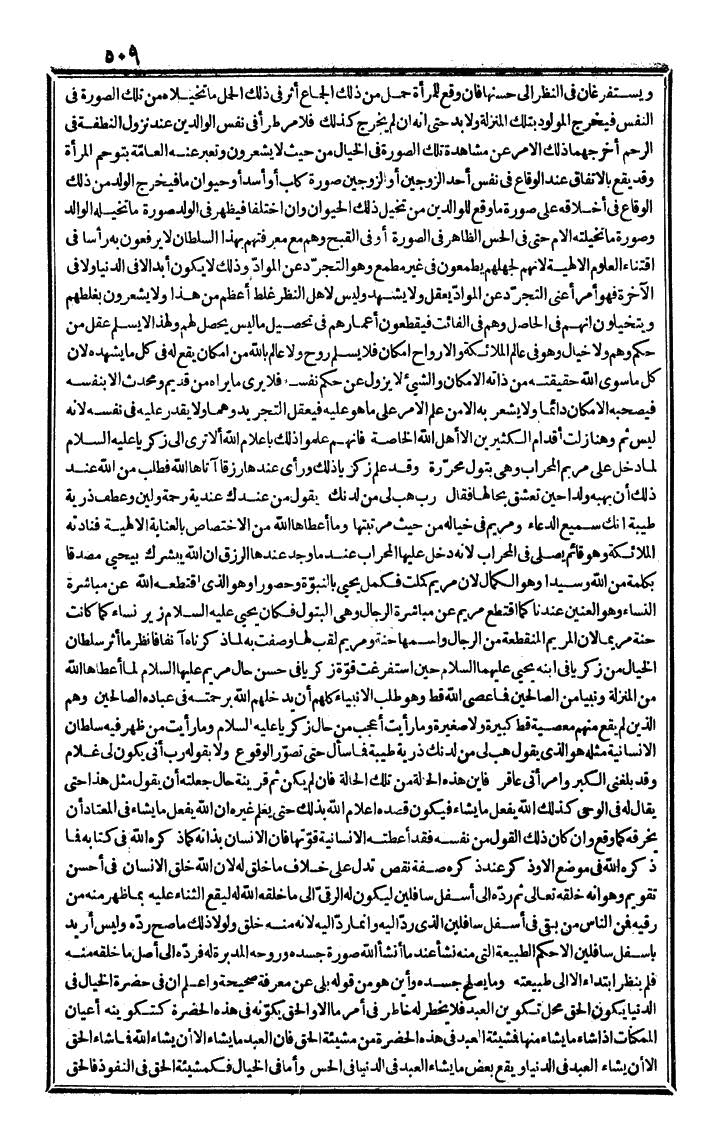 ٥٠٩
ويستفرغان فى النظر الى حسنها فان وقع للمرأة حمل من ذلك الجماع أثر فى ذلك الحمل ما تخيلاه من تلك الصورة فى
النفس فيخرج المولود بتلك المنزلة ولا بد حتى انه ان لم يخرج كذلك فلامر طرأ فى نفس الوالدين عند نزول النطفة فى
الرحم أخرجهما ذلك الامر عن مشاهدة تلك الصورة فى الخيال من حيث لا يشعرون وتعبر عنه العامّة بتوحم المرأة
وقد يقع بالاتفاق عند الوقاع فى نفس أحد الزوجين أو الزوجين صورة كلب أو أسد أو حيوان ما فيخرج الولد من ذلك
الوقاع فى أخلاقه على صورة ما وقع للوالدين من تخيل ذلك الحيوان وان اختلفا فيظهر فى الولد صورة ما تخيله الوالد
وصورة ما تخيلته الام حتى فى الحس الظاهر فى الصورة أو فى القبح وهم مع معرفتهم بهذا السلطان لا يرفعون به رأسا فى
اقتناء العلوم الالهية لانهم لجهلهم يطمعون فى غير مطمع وهو التجرّد عن الموادّ وذلك لا يكون أبدا لا فى الدنيا ولا فى
الآخرة فهو أمر أعنى التجرّد عن الموادّ يعقل ولا يشهد وليس لاهل النظر غلط أعظم من هذا ولا يشعرون بغلطهم
ويتخيلون انهم فى الحاصل وهم فى الفائت فيقطعون أعمارهم فى تحصيل ما ليس يحصل لهم ولهذا لا يسلم عقل من
حكم وهم ولا خيال وهو فى عالم الملائكة والارواح امكان فلا يسلم روح ولا عالم بالله من امكان يقع له فى كل ما يشهده لان
كل ما سوى الله حقيقته من ذاته الامكان والشئ لا يزول عن حكم نفسه فلا يرى ما يراه من قديم ومحدث الا بنفسه
فيصحبه الامكان دائما ولا يشعر به الا من علم الامر على ما هو عليه فيعقل التجريد وهما ولا يقدر عليه فى نفسه لانه
ليس ثم وهنا زلت أقدام الكثيرين الا أهل الله الخاصة فانهم علموا ذلك باعلام الله ألا ترى الى زكريا عليه السلام
لما دخل على مريم المحراب وهى بتول محررّة وقد علم زكريا ذلك ورأى عندها رزقا آتاها الله فطلب من الله عند
ذلك أن يهبه ولدا حين تعشق بحالها فقال رب هب لى من لدنك يقول من عندك عندية رحمة ولين وعطف ذرية
طيبة انك سميع الدعاء ومريم فى خياله من حيث مرتبتها وما أعطاها الله من الاختصاص بالعناية الالهية فنادته
الملائكة وهو قائم يصلى فى المحراب لانه دخل عليها المحراب عند ما وجد عندها الرزق ان الله يبشرك بيحيى مصدقا
بكلمة من الله وسيدا وهو الكمال لان مريم كملت فكمل يحيى بالنبوّة وحصورا وهو الذى اقتطعه الله عن مباشرة
النساء وهو العنين عندنا كما اقتطع مريم عن مباشرة الرجال وهى البتول فكان يحيى عليه السلام زير نساء كما كانت
حنة مريما لان المريم المنقطعة من الرجال واسمها حنة ومريم لقب لها وصفت به لما ذكرناه آنفا فانظر ما أثر سلطان
الخيال من زكريا فى ابنه يحيى عليهما السلام حين استفرغت قوّة زكريا فى حسن حال مريم عليها السلام لما أعطاها الله
من المنزلة ونبيا من الصالحين فما عصى الله قط وهو طلب الانبياء كلهم أن يدخلهم الله برحمته فى عباده الصالحين وهم
الذين لم يقع منهم معصية قط كبيرة ولا صغيرة وما رأيت أعجب من حال زكريا عليه السلام وما رأيت من ظهر فيه سلطان
الانسانية مثله هو الذى يقول هب لى من لدنك ذرية طيبة فما سأل حتى تصوّر الوقوع ولا بقوله رب أنى يكون لى غلام
وقد بلغنى الكبر وامرأتى عاقر فاين هذه الحالة من تلك الحالة فان لم يكن ثم قرينة حال جعلته أن يقول مثل هذا حتى
يقال له فى الوحى كذلك الله يفعل ما يشاء فيكون قصده اعلام الله بذلك حتى يعلم غيره ان الله يفعل ما يشاء فى المعتاد أن
يخرقه كما وقع وان كان ذلك القول من نفسه فقد أعطته الانسانية قوّتها فان الانسان بذاته كما ذكره الله فى كتابه فما
ذكره الله فى موضع الا وذكر عند ذكره صفة نقص تدل على خلاف ما خلق له لان الله خلق الانسان فى أحسن
تقويم وهو انه خلقه تعالى ثم ردّه الى أسفل سافلين ليكون له الرقىّ الى ما خلقه الله له ليقع الثناء عليه بما ظهر منه من
رقيه فمن الناس من بقى فى أسفل سافلين الذى ردّ اليه وانما ردّ اليه لانه منه خلق ولولا ذلك ما صح ردّه وليس أريد
باسفل سافلين الا حكم الطبيعة التى منه نشأ عند ما أنشأ الله صورة جسده وروحه المدبرة له فردّه الى أصل ما خلقه منه
فلم ينظر ابتداء الا الى طبيعته وما يصلح جسده وأين هو من قوله بلى عن معرفة صحيحة واعلم ان فى حضرة الخيال فى
الدنيا يكون الحق محل تكوين العبد فلا يخطر له خاطر فى أمر ما الا والحق يكوّنه فى هذه الحضرة كتكوينه أعيان
الممكنات اذا شاء ما يشاء منها فمشيئة العبد فى هذه الحضرة من مشيئة الحق فان العبد ما يشاء الا أن يشاء الله فما شاء الحق
الا أن يشاء العبد فى الدنيا ويقع بعض ما يشاء العبد فى الدنيا فى الحس وأما فى الخيال فكمشيئة الحق فى النفوذ فالحق